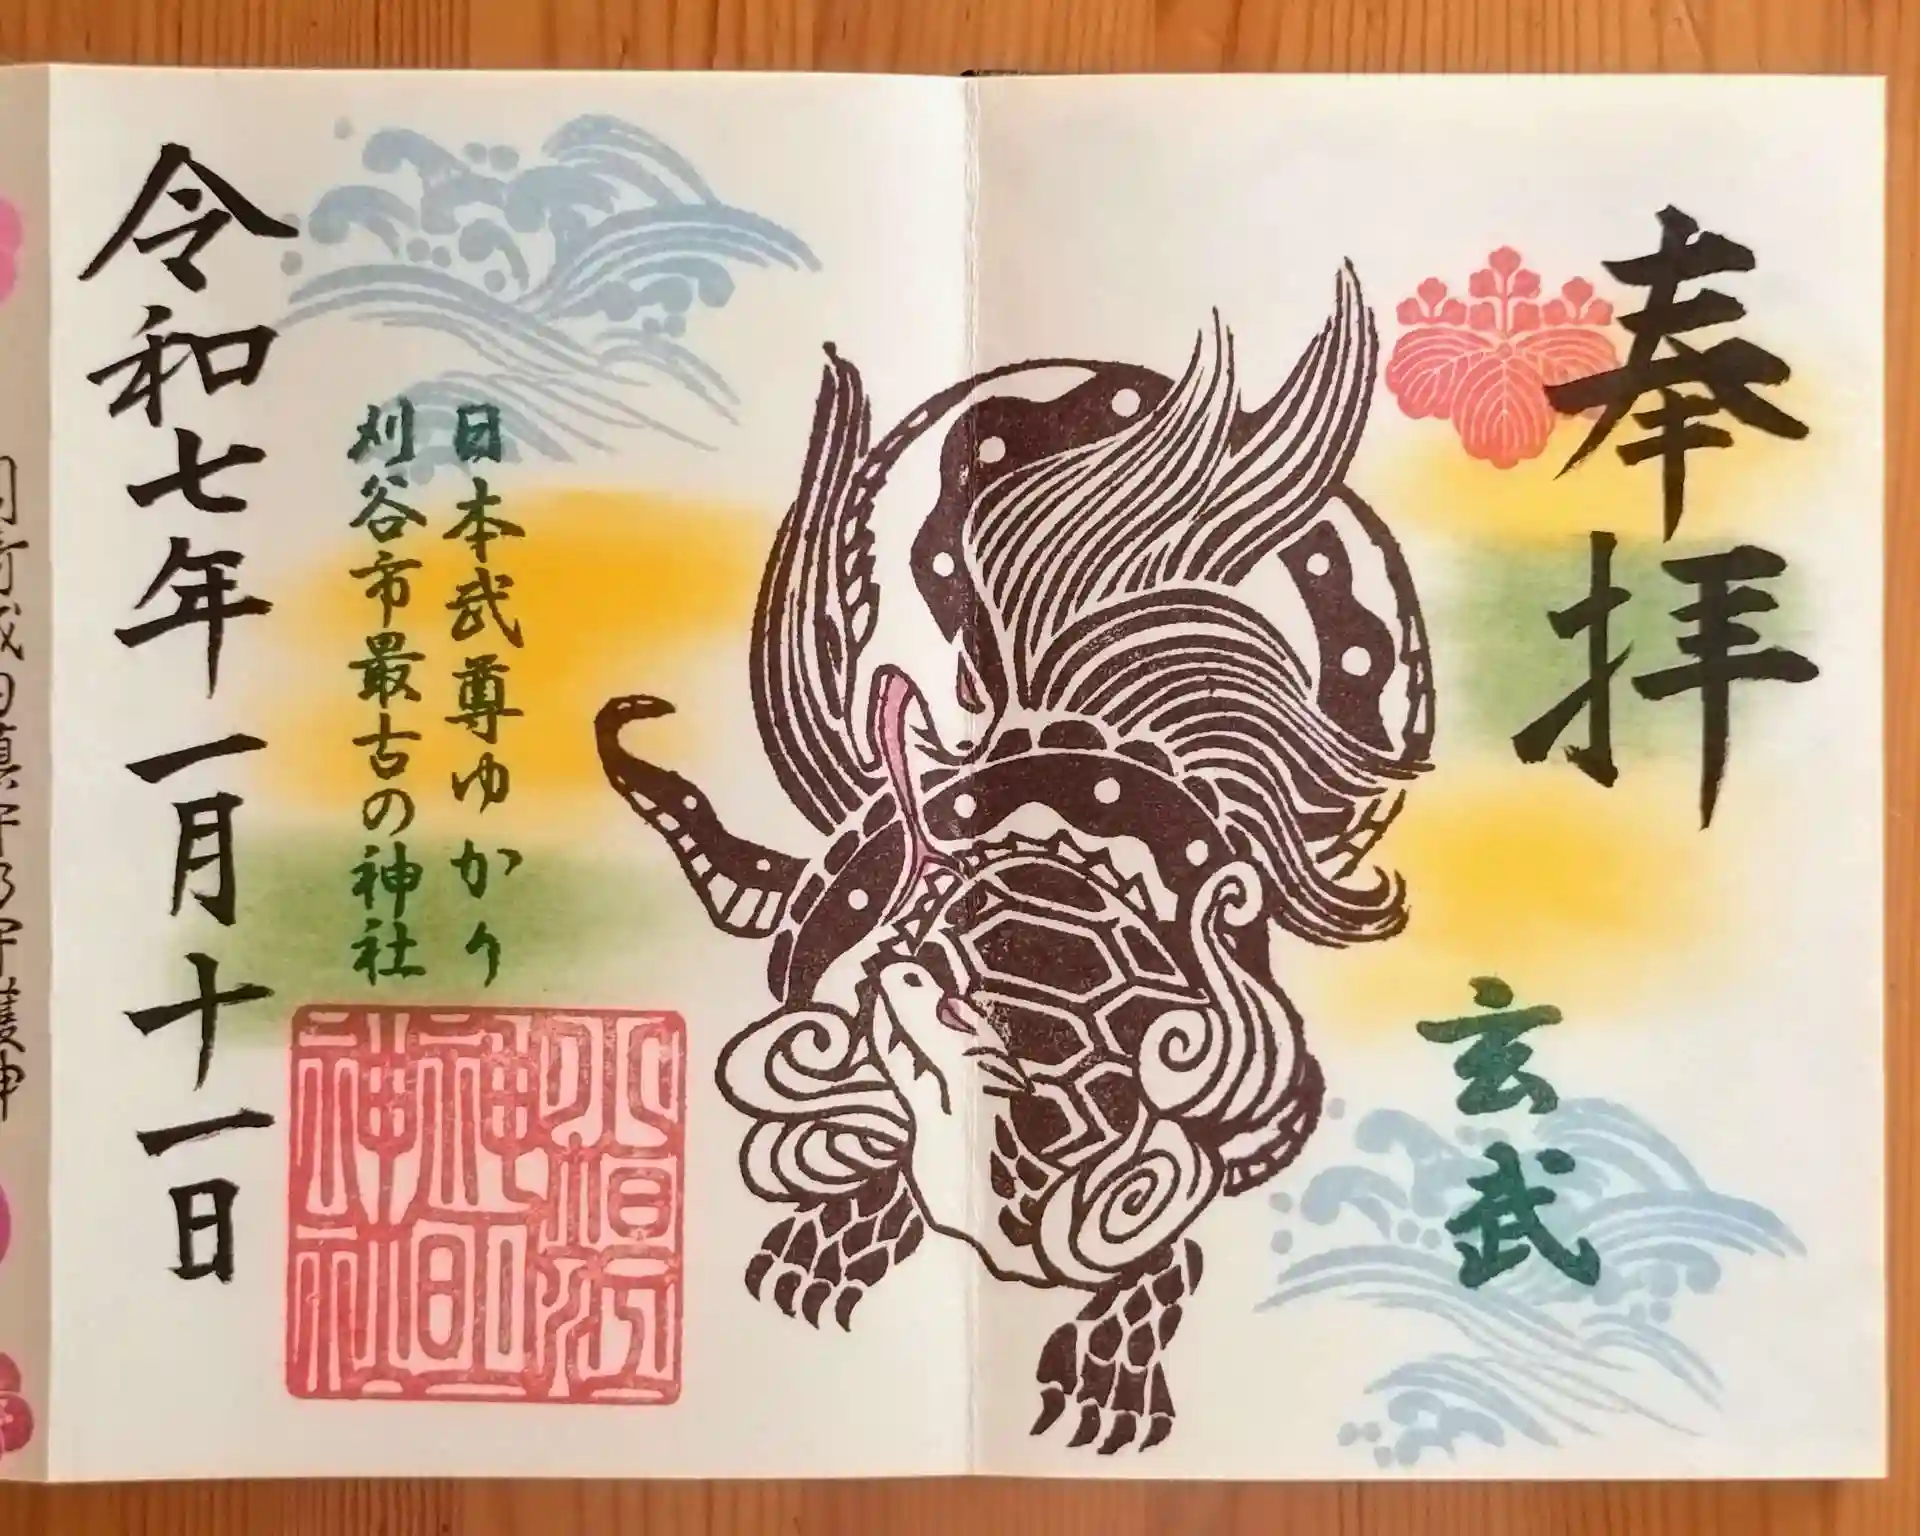 奉拝
玄武
日本武尊ゆかり
刈谷市最古の神社
小垣江
神明
神社
令和七年一月十一日